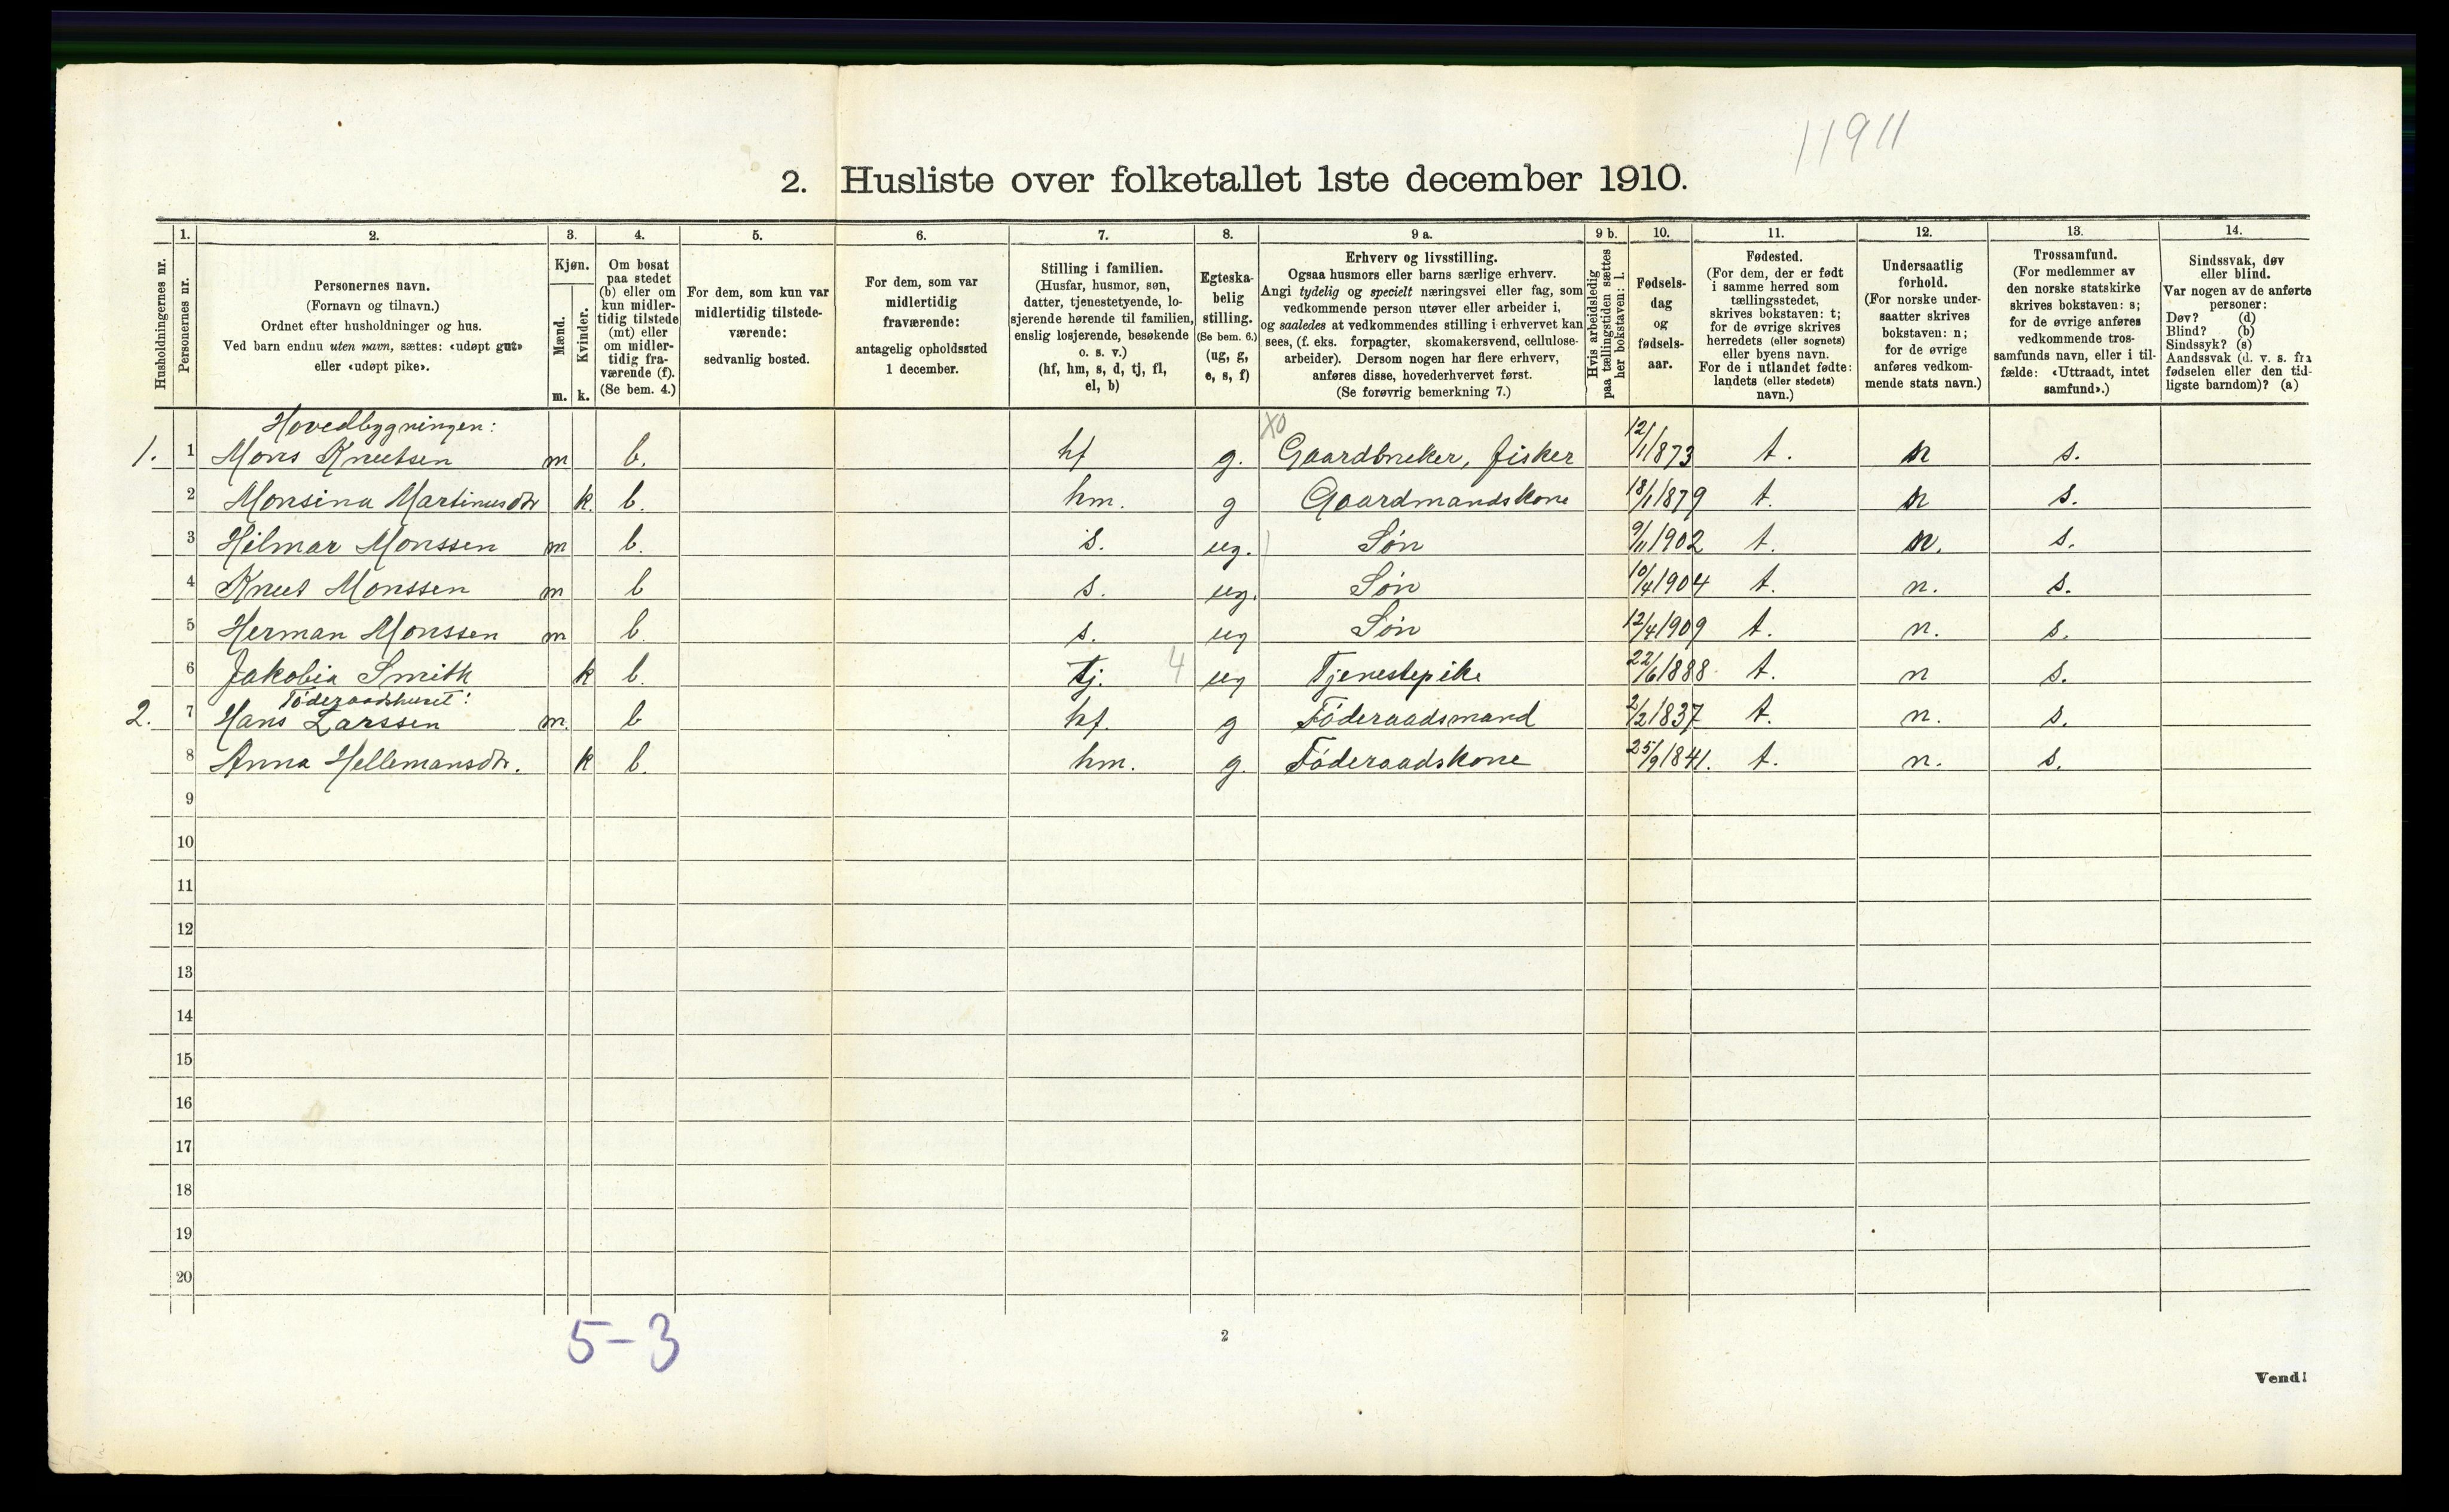 11911
2. Husliste over folketallet 1ste december 1910.
Husholdningernes nr.
1.
Personernes nr.
2.
Personernes navn.
(Fornavn og tilnavn.)
Ordnet efter husholdninger og hus.
Ved barn endnu uten navn, sættes: «udøpt gut»
eller «udøpt pike».
3.
Kjøn.
Mænd.
Kvinder.
m. k.
4.
Om bosat
paa stedet
(b) eller om
kun midler-
tidig tilstede
(mt) eller
om midler-
tidig fra-
værende (f).
(Se bem. 4.)
5.
For dem, som kun var
midlertidig tilstede-
værende:
sedvanlig bosted.
6.
For dem, som var
midlertidig
fraværende:
antagelig opholdssted
1 december.
7.
Stilling i familien.
(Husfar, husmor, søn,
datter, tjenestetyende, lo-
sjerende hørende til familien,
enslig losjerende, besøkende
o. s. v.)
(hf, hm, s, d, tj, fl,
el, b)
8.
Egteska-
belig
stilling.
(Se bem. 6.)
(ug, g,
e, s, f)
9 a.
Erhverv og livsstilling.
Ogsaa husmors eller barns særlige erhverv.
Angi tydelig og specielt næringsvei eller fag, som
vedkommende person utøver eller arbeider i,
og saaledes at vedkommendes stilling i erhvervet kan
sees, (f. eks. forpagter, skomakersvend, cellulose-
arbeider). Dersom nogen har flere erhverv,
anføres disse, hovederhvervet først.
(Se forøvrig bemerkning 7.)
9 b.
Hvis arbeidsledig
paa tællingstiden sættes
her bokstaven: l.
10.
Fødsels-
dag
og
fødsels-
aar.
11.
Fødested.
(For dem, der er født
i samme herred som
tællingsstedet,
skrives bokstaven: t;
for de øvrige skrives
herredets (eller sognets)
eller byens navn.
For de i utlandet fødte:
landets (eller stedets)
navn.)
12.
Undersaatlig
forhold.
(For norske under-
saatter skrives
bokstaven: n;
for de øvrige
anføres vedkom-
mende stats navn.)
13.
Trossamfund.
(For medlemmer av
den norske statskirke
skrives bokstaven: s;
for de øvrige anføres
vedkommende tros-
samfunds navn, eller i til-
fælde: «Uttraadt, intet
samfund».)
14.
Sindssvak, døv
eller blind.
Var nogen av de anførte
personer:
Døv? (d)
Blind? (b)
Sindssyk? (s)
Aandssvak (d. v. s. fra
fødselen eller den tid-
ligste barndom)? (a)
Hovedbygningen: X0
1. 1 Mons Knutsen m b. hf g. Gaardbruker, fisker 12/1 1873 t. n s.
2 Monsina Martinusdtr k. b. hm. g Gaardmandskone 18/1 1879 t. n s.
3 Hilmar Monssen m b. s. ug. Søn 9/11 1902 t. n. s.
4 Knut Monssen m b s. ug. Søn 10/4 1904 t. n. s.
5 Herman Monssen m b. s. ug Søn 12/4 1909 t. n. s.
6 Jakobia Smith k b. tj. 4 ug Tjenestepike 22/6 1888 t. n s.
Føderaadshuset:
2. 7 Hans Larssen m. b hf. g Føderaadsmand 2/2 1837 t. n. s.
8 Anna Hellemansdtr. k b. hm. g. Føderaadskone 25/9 1841. t. n. s.
9
10
11
12
13
14
15
16
17
18
19
20
5-3
2
Vend!